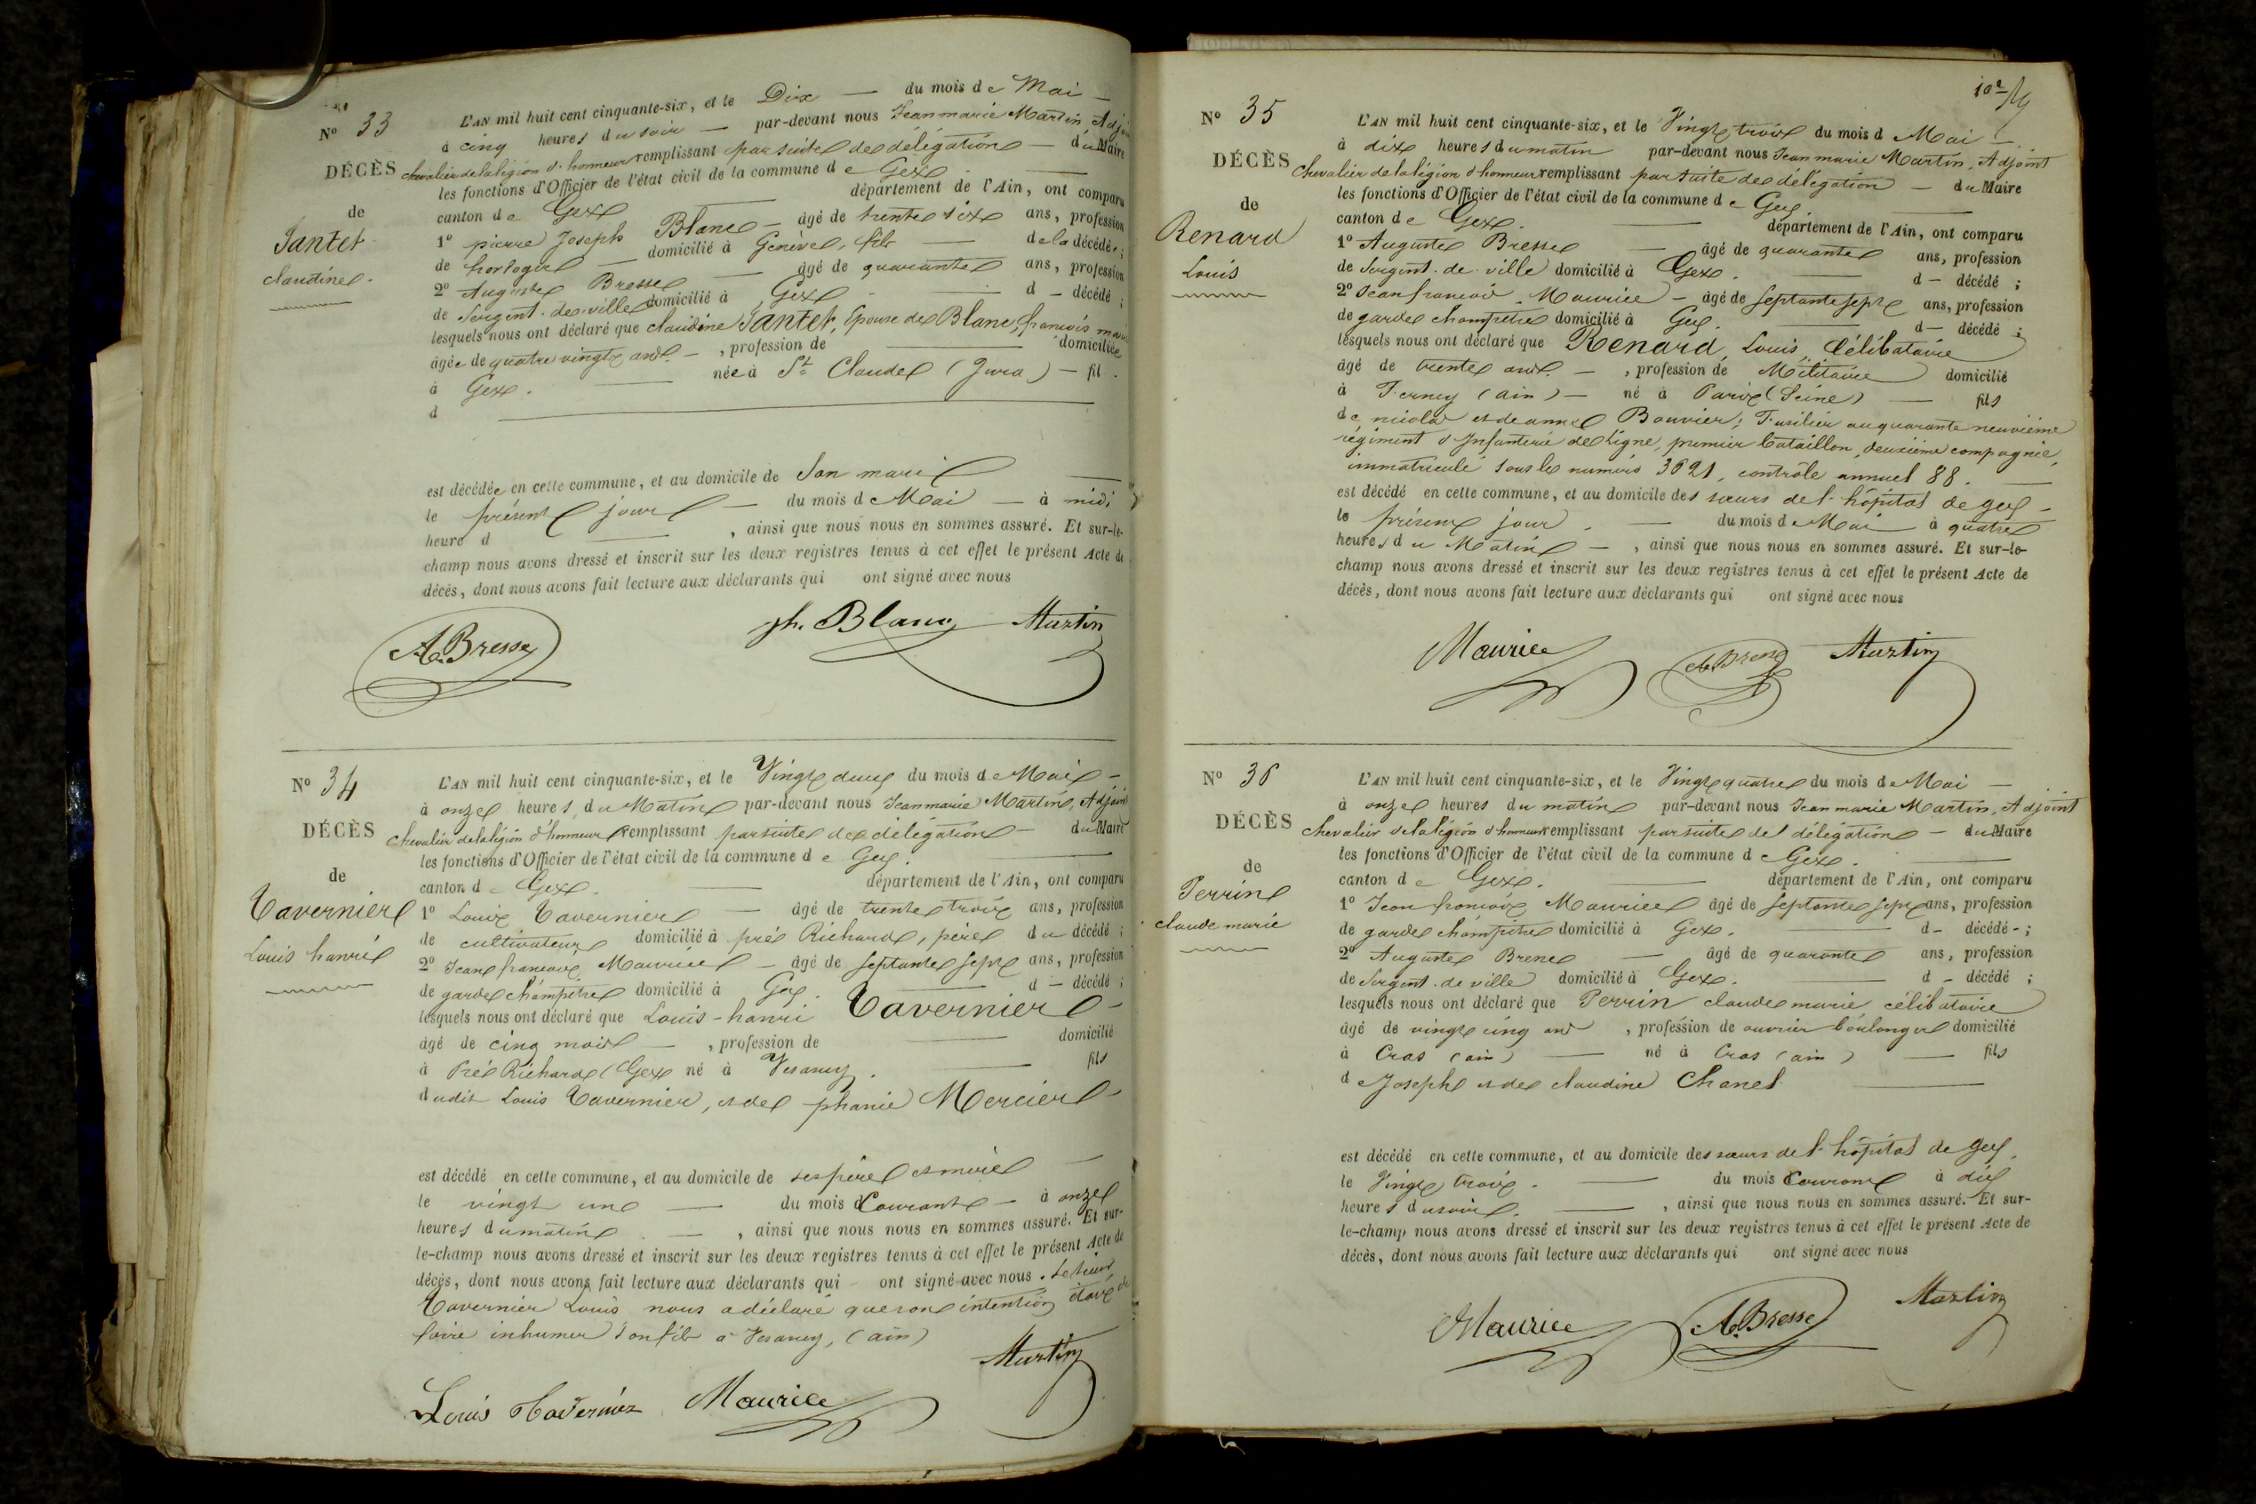 N° 33
DÉCÈS
de
Jantet
claudine.
L'AN mil huit cent cinquante-six, et le Dix du mois de Mai
à cinq heures du soir par-devant nous Jean marie Martin, Adjoint
chevalier de la légion d'honneur remplissant par suite de délégation du Maire
les fonctions d'Officier de l'état civil de la commune de Gex
canton de Gex département de l'Ain, ont comparu
1° pierre Joseph Blanc âgé de trente six ans, profession
de horloger domicilié à Genève, fils de la décédée;
2° Auguste Bresse âgé de quarante ans, profession
de Sergent de ville domicilié à Gex d décédé;
lesquels nous ont déclaré que claudine Jantet, Epouse de Blanc, francois marie
âgée de quatre vingts ans, profession de domiciliée
à Gex. née à St Claude (Jura) fil
d
est décédée en cette commune, et au domicile de Son mari
le présent jour du mois de Mai à midi
heure d , ainsi que nous nous en sommes assuré. Et sur-le-
champ nous avons dressé et inscrit sur les deux registres tenus à cet effet le présent Acte de
décès, dont nous avons fait lecture aux déclarants qui ont signé avec nous
A. Bresse Jh. Blanc Martin
N° 34
DÉCÈS
de
Tavernier
Louis hanri
L'AN mil huit cent cinquante-six, et le Vingt deux du mois de Mai
à onze heures du Matin par-devant nous Jean marie Martin, Adjoint
chevalier de la légion d'honneur remplissant par suite de délégation du Maire
les fonctions d'Officier de l'état civil de la commune de Gex.
canton de Gex. département de l'Ain, ont comparu
1° Louis Tavernier âgé de trente trois ans, profession
de cultivateur domicilié à pré Richard, père du décédé;
2° Jean francois Maurice âgé de septante sept ans, profession
de garde champêtre domicilié à Gex. d décédé;
lesquels nous ont déclaré que Louis-hanri Tavernier
âgé de cinq mois, profession de domicilié
à Pré Richard (Gex né à Vesancy. fils
dudit Louis Tavernier, et de phanie Mercier
est décédé en cette commune, et au domicile de ses père et mère
le vingt un du mois Courant à onze
heures du matin, ainsi que nous nous en sommes assuré. Et sur-
le-champ nous avons dressé et inscrit sur les deux registres tenus à cet effet le présent Acte de
décès, dont nous avons fait lecture aux déclarants qui ont signé avec nous. Le sieur
Tavernier Louis nous a déclaré que son intention était de
faire inhumer son fils à Vesancy, (ain)
Louis Tavernier Maurice Martin
N° 35
DÉCÈS
de
Renard
Louis
L'AN mil huit cent cinquante-six, et le Vingt trois du mois d Mai
à dix heures du matin par-devant nous Jean marie Martin, Adjoint
chevalier de la légion d'honneur remplissant par suite de délégation du Maire
les fonctions d'Officier de l'état civil de la commune de Gex.
canton de Gex. département de l'Ain, ont comparu
1° Auguste Bresse âgé de quarante ans, profession
de Sergent de ville domicilié à Gex. d décédé;
2° Jean francois Maurice âgé de septante sept ans, profession
de garde champêtre domicilié à Gex. d décédé;
lesquels nous ont déclaré que Renard, Louis, Célibataire
âgé de trente ans, profession de Militaire domicilié
à Ferney (ain) né à Paris (Seine) fils
de nicolas et de anne Bouvier; Fusilier au quarante neuvième
régiment d'Infanterie de Ligne, premier bataillon, deuxième compagnie,
immatriculé sous le numéro 3621, contrôle annuel 88.
est décédé en cette commune, et au domicile des sœurs de l'hôpital de gex
le présent jour du mois de Mai à quatre
heures du Matin, ainsi que nous nous en sommes assuré. Et sur-le-
champ nous avons dressé et inscrit sur les deux registres tenus à cet effet le présent Acte de
décès, dont nous avons fait lecture aux déclarants qui ont signé avec nous
Maurice A. Bresse Martin
N° 36
DÉCÈS
de
Perrin
claude marie
L'AN mil huit cent cinquante-six, et le Vingt quatre du mois de Mai
à onze heures du matin par-devant nous Jean marie Martin, Adjoint
chevalier de la légion d'honneur remplissant par suite de délégation du Maire
les fonctions d'Officier de l'état civil de la commune d Gex.
canton de Gex. département de l'Ain, ont comparu
1° Jean francois Maurice âgé de septante sept ans, profession
de garde champêtre domicilié à Gex. d décédé;
2° Auguste Bresse âgé de quarante ans, profession
de Sergent de ville domicilié à Gex. d décédé;
lesquels nous ont déclaré que Perrin claude marie, célibataire
âgé de vingt cinq ans, profession de ouvrier boulanger domicilié
à Cras (ain) né à Cras (ain) fils
d Joseph et de claudine Chanel
est décédé en cette commune, et au domicile des sœurs de l'hôpital de gex.
le Vingt trois. du mois Courant à dix
heures du soir, ainsi que nous nous en sommes assuré. Et sur-
le-champ nous avons dressé et inscrit sur les deux registres tenus à cet effet le présent Acte de
décès, dont nous avons fait lecture aux déclarants qui ont signé avec nous
Maurice A. Bresse Martin